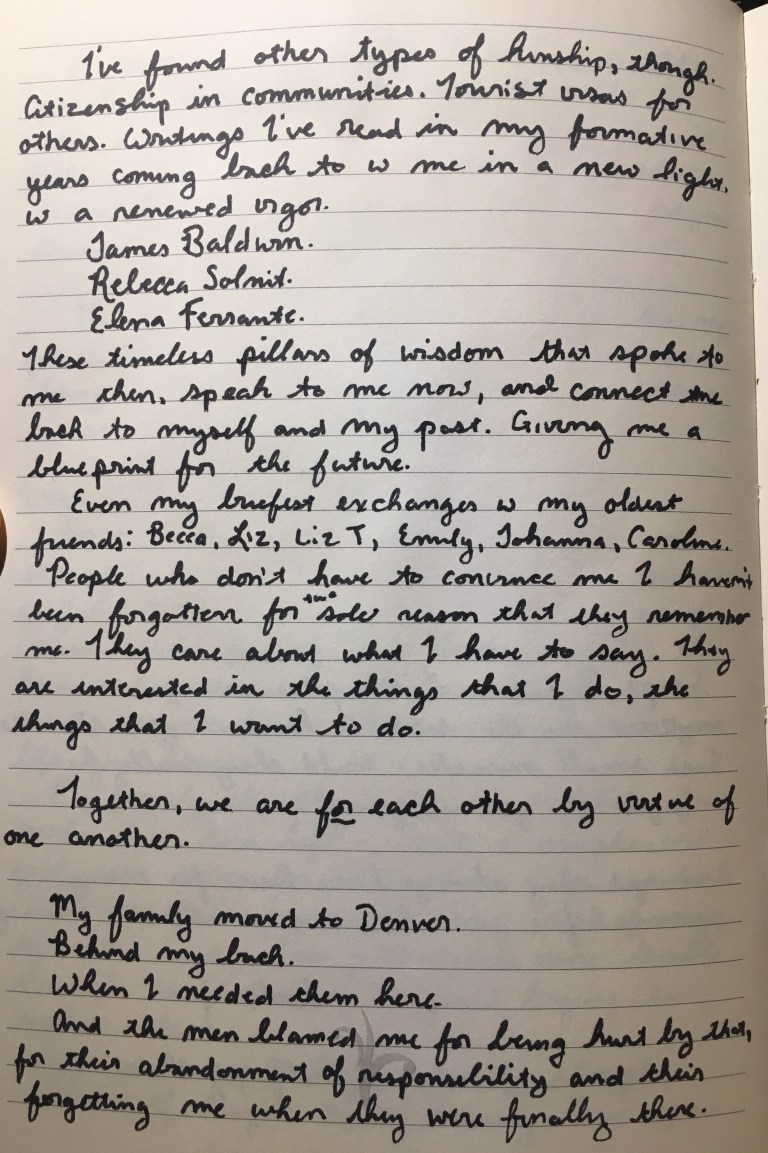 I've found other types of kinship, though.
Citizenship in communities. Tourist visas for
others. Writings I've read in my formative
years coming back to w me in a new light,
w a renewed vigor.
James Baldwin.
Rebecca Solnit.
Elena Ferrante.
These timeless pillars of wisdom that spoke to
me then, speak to me now, and connect me
back to myself and my past. Giving me a
blueprint for the future.
Even my briefest exchanges w my oldest
friends: Becca, Liz, Liz T, Emily, Johanna, Caroline.
People who don't have to convince me I haven't
been forgotten for the sole reason that they remember
me. They care about what I have to say. They
are interested in the things that I do, the
things that I want to do.
Together, we are for each other by virtue of
one another.
My family moved to Denver.
Behind my back.
When I needed them here.
And the men blamed me for being hurt by that,
for their abandonment of responsibility and their
forgetting me when they were finally there.